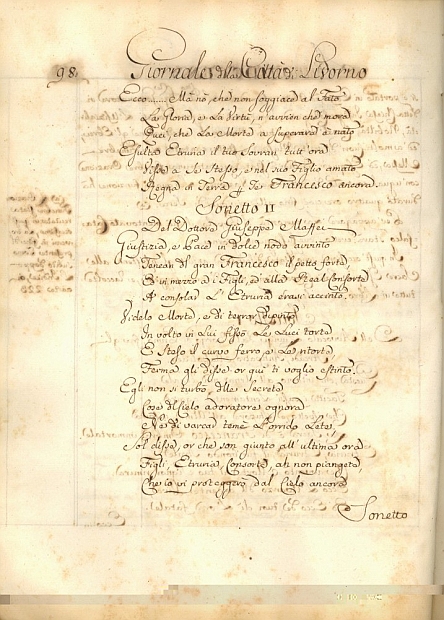 98
Giornale della Città di Livorno
Ecco...... Ma nò, che non soggiace al Fato
La Gloria, e la Virtù, n avvien che mora
Duci, che La Morte a superar è nato
Esulta Etruria il tuo Sovran tutt'ora
Visse a Se Stesso, e nel suo Figlio amato
Regna di Terra p Te Francesco ancora.
Sonetto II
Del Dottore Giuseppe Maffei
Giustizia, e Pace in dolce nodo avvinto
Tenean del gran Francesco il petto forte
E in mezzo a i Figli, ed alla Real Consorte
A consolar L'Etruria erasi accinto.
Videlo Morte, e di
In volto in Lui fissò Le Luci torte
E Steso il curvo ferro, e Le ritorte
Ferma gli disse or qui ti voglio estinto.
Egli non si turbò, delle Secrete
Cose del cielo adoratore ognora
Nè di varcar teme L'orrido Lete,
Sol disse, or che son giunto all'ultima ora
Figli, Etruria, Consorte, ah non piangete
Che io vi proteggerò dal Cielo ancora
Sonetto